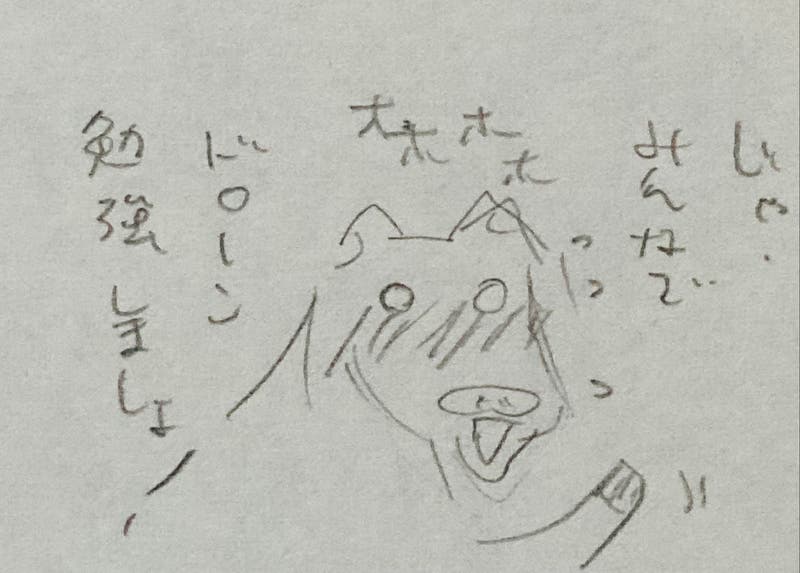 じゃ.
みんなで
オホホホ
ドローン
勉強しましょ